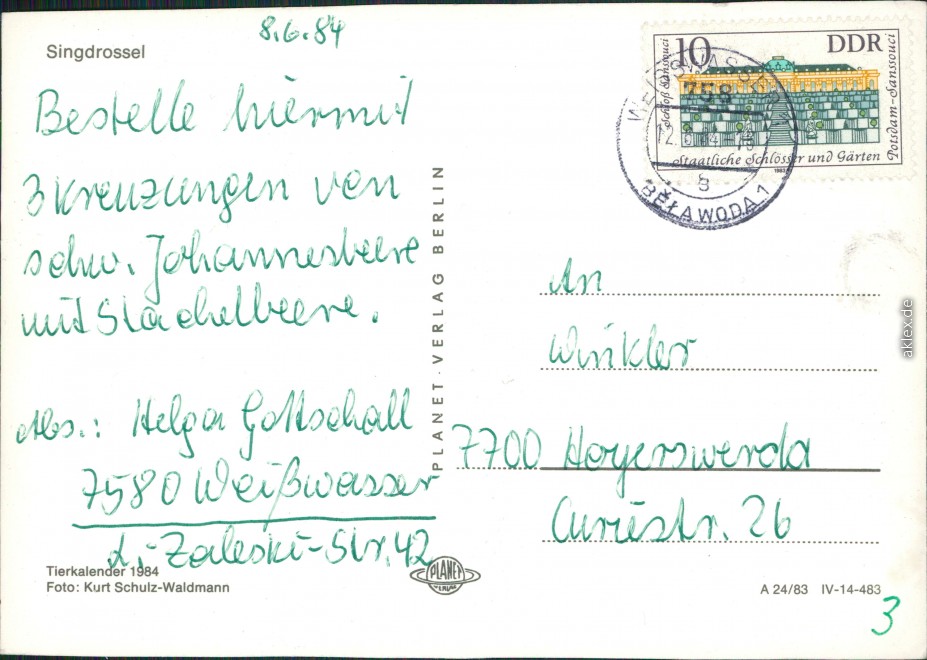 8.6.84
Singdrossel
Bestelle hiermit
3 Kreuzungen von
schw. Johannesbeere
mit Stachelbeere.
Abs.: Helga Gottschall
7580 Weißwasser
L.-Zaleski-Str. 42
Tierkalender 1984
Foto: Kurt Schulz-Waldmann
PLANET-VERLAG BERLIN
PLANET
VERLAG
10
DDR
Schloß Sanssouci
Potsdam-Sanssouci
Staatliche Schlösser und Gärten
1983
WEISSWASSER
758
a
BĚŁA WODA 1
An
Winkler
7700 Hoyerswerda
Curiestr. 26
A 24/83 IV-14-483
3
aklex.de